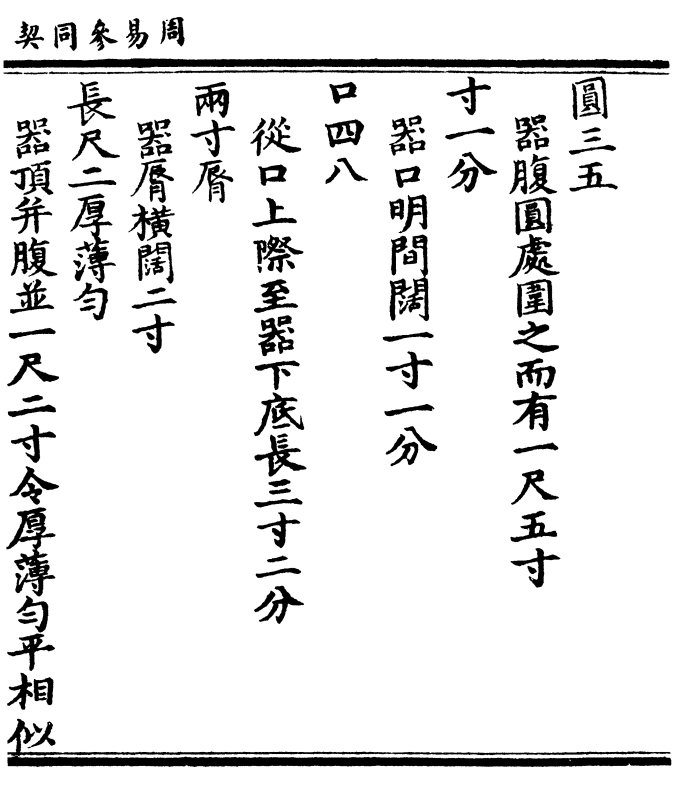 周易參同契
圓三五
器腹圓處圍之而有一尺五寸
寸一分
器口明間闊一寸一分
口四八
從口上際至器下底長三寸二分
兩寸脣
器脣橫闊二寸
長尺二厚薄勻
器頂并腹並一尺二寸令厚薄勻平相似